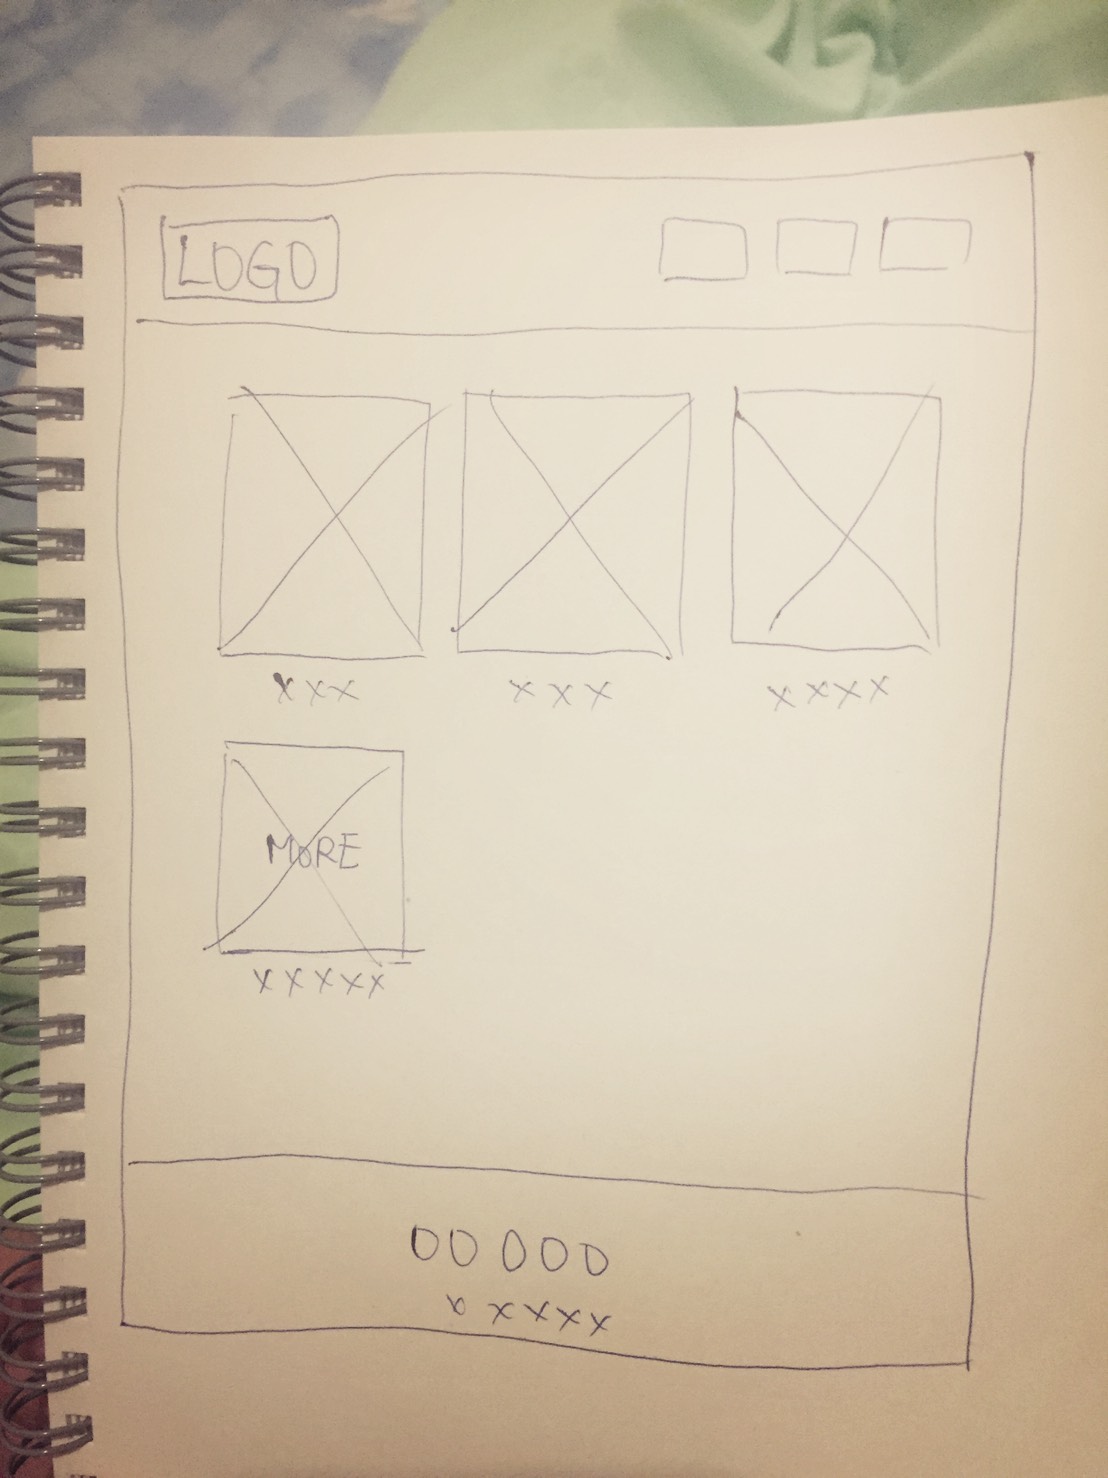 LOGO
xxx xxx xxxx
MORE
xxxxx
OOOOO
xxxxx